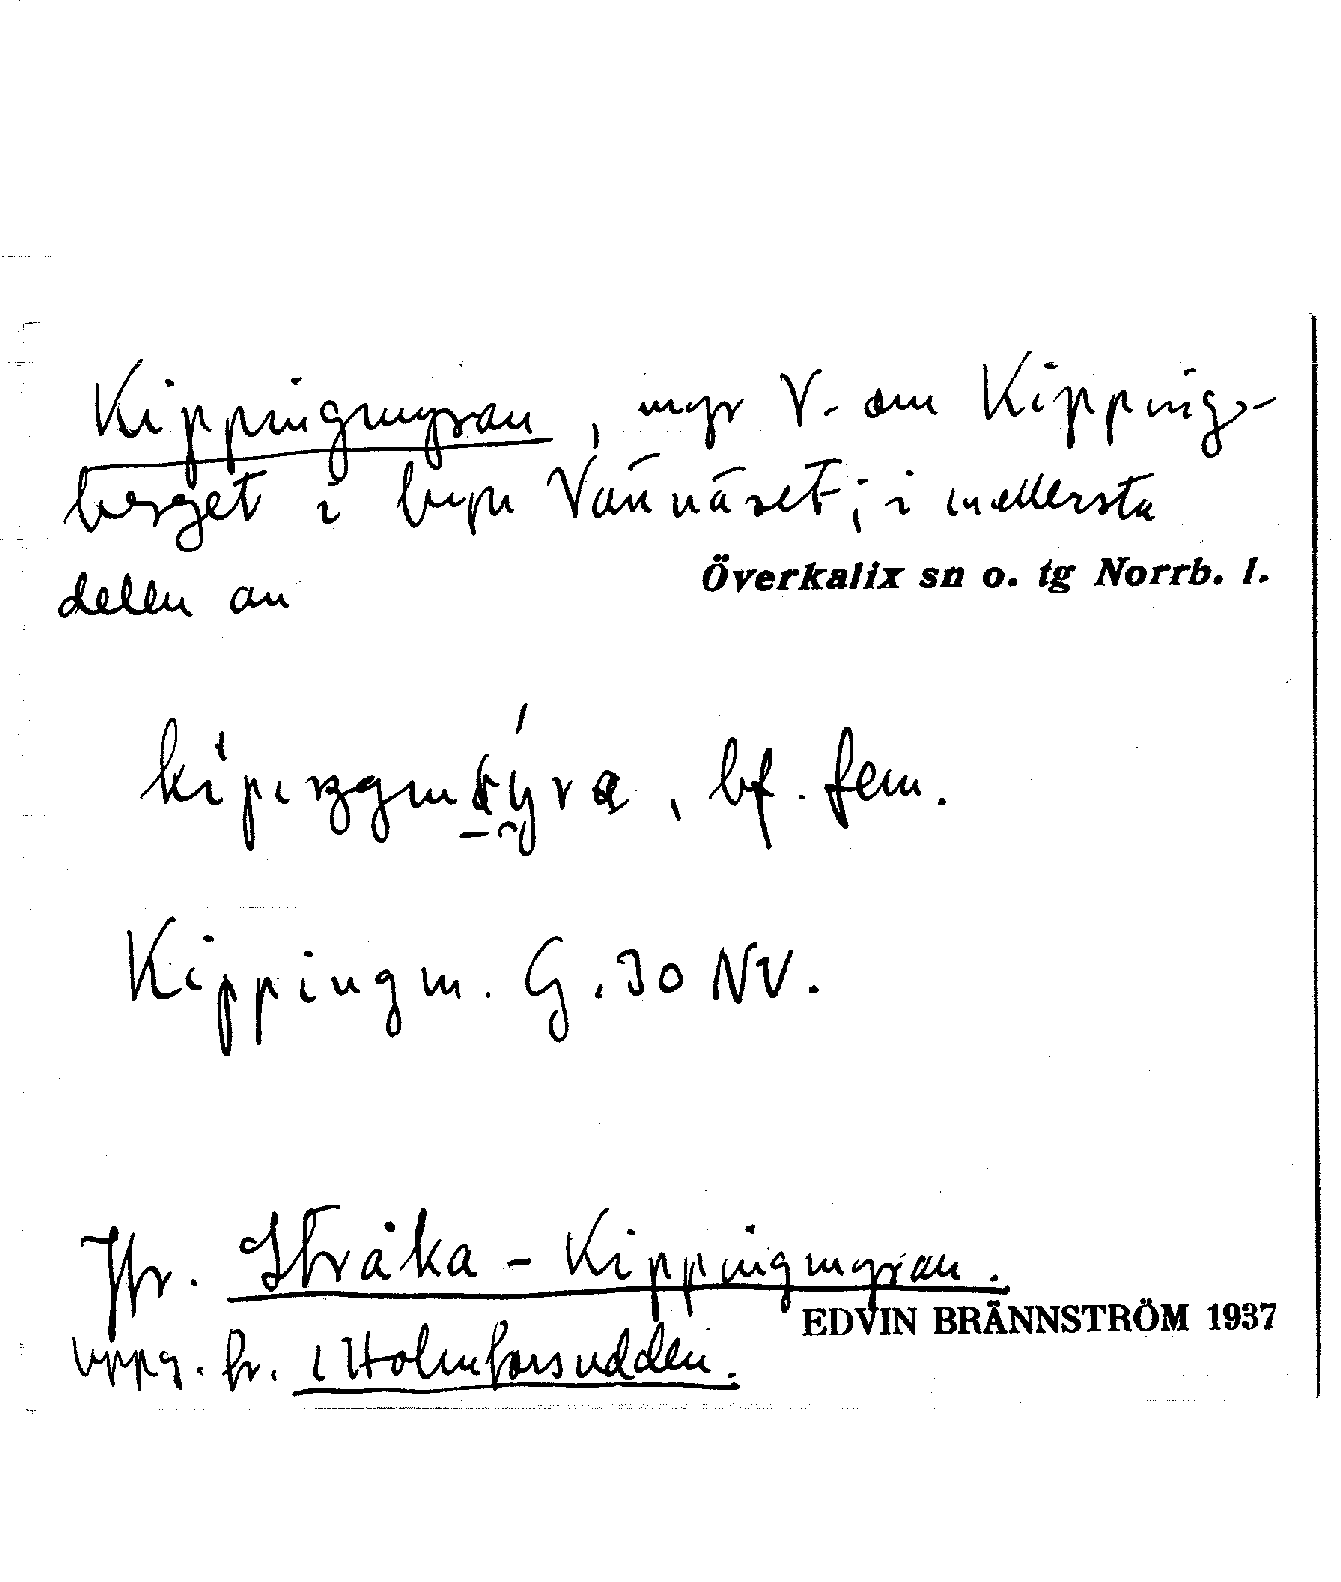 Kippingmyran, myr V. om Kipping-
berget i byn Vännäset; i mellersta
delen av
Överkalix sn o. tg Norrb. l.
, bf. fem.
Kippingm. G. 30 NV.
Jfr. Stråka-Kippingmyran.
EDVIN BRÄNNSTRÖM 1937
uppg. fr. i Holmforsudden.